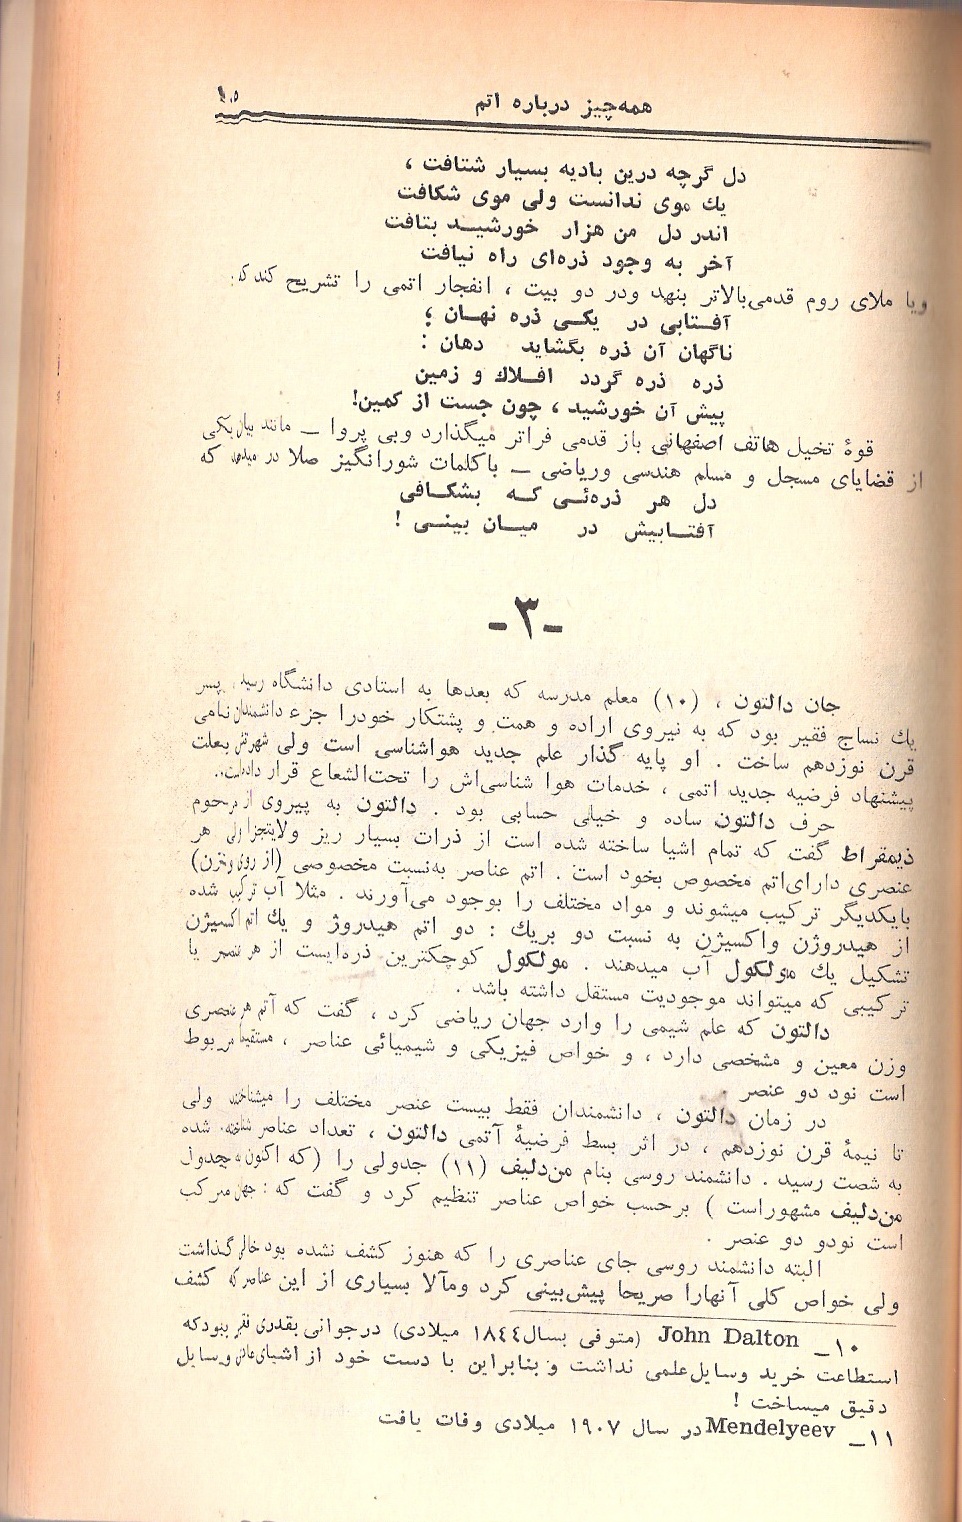 همه‌چیز درباره اتم
۱۰۵
دل گرچه درین بادیه بسیار شتافت ،
یك موی ندانست ولی موی شکافت
اندر دل من هزار خورشید بتافت
آخر به وجود ذره‌ای راه نیافت
ویا ملای روم قدمی‌بالاتر بنهد ودر دو بیت ، انفجار اتمی را تشریح کند که :
آفتابی در یکی ذره نهان ؛
ناگهان آن ذره بگشاید دهان :
ذره ذره گردد افلاك و زمین
پیش آن خورشید ، چون جست از کمین!
قوهٔ تخیل هاتف اصفهانی باز قدمی فراتر میگذارد وبی پروا ــ مانند بیان یکی
از قضایای مسجل و مسلم هندسی وریاضی ــ باکلمات شورانگیز صلا در میدهد که
دل هر ذره‌ئی که بشکافی
آفتابیش در میان بینی !
-۳-
جان دالتون ، (۱۰) معلم مدرسه که بعدها به استادی دانشگاه رسید ، پسر
یك نساج فقیر بود که به نیروی اراده و همت و پشتکار خودرا جزء دانشمندان نامی
قرن نوزدهم ساخت . او پایه گذار علم جدید هواشناسی است ولی شهرتش بعلت
پیشنهاد فرضیه جدید اتمی ، خدمات هوا شناسی‌اش را تحت‌الشعاع قرار داده‌است.
حرف دالتون ساده و خیلی حسابی بود . دالتون به پیروی از مرحوم
ذیمقراط گفت که تمام اشیا ساخته شده است از ذرات بسیار ریز ولایتجزا ولی هر
عنصری دارای‌اتم مخصوص بخود است . اتم عناصر به‌نسبت مخصوصی (از روی وزن)
بایکدیگر ترکیب میشوند و مواد مختلف را بوجود می‌آورند . مثلا آب ترکیب شده
از هیدروژن واکسیژن به نسبت دو بریك : دو اتم هیدروژ و یك اتم اکسیژن
تشکیل یك مولکول آب میدهند . مولکول کوچکترین ذره‌ایست از هر عنصر یا
ترکیبی که میتواند موجودیت مستقل داشته باشد .
دالتون که علم شیمی را وارد جهان ریاضی کرد ، گفت که آتم هر عنصری
وزن معین و مشخصی دارد ، و خواص فیزیکی و شیمیائی عناصر ، مستقیما مربوط
است نود دو عنصر .
در زمان دالتون ، دانشمندان فقط بیست عنصر مختلف را میشناختند ولی
تا نیمهٔ قرن نوزدهم ، در اثر بسط فرضیهٔ آتمی دالتون ، تعداد عناصر شناخته شده
به شصت رسید . دانشمند روسی بنام من‌دلیف (۱۱) جدولی را (که اکنون به جدول
من‌دلیف مشهوراست ) برحسب خواص عناصر تنظیم کرد و گفت که : جهان مرکب
است نودو دو عنصر .
البته دانشمند روسی جای عناصری را که هنوز کشف نشده بود خالی گذاشت
ولی خواص کلی آنهارا صریحا پیش‌بینی کرد ومآلا بسیاری از این عناصر که کشف
۱۰ــ John Dalton (متوفی بسال ۱۸٤٤ میلادی) درجوانی بقدری فقیر بود که
استطاعت خرید وسایل علمی نداشت و بنابراین با دست خود از اشیای عادی وسایل
دقیق میساخت !
۱۱ــ Mendelyeev در سال ۱۹۰۷ میلادی وفات یافت